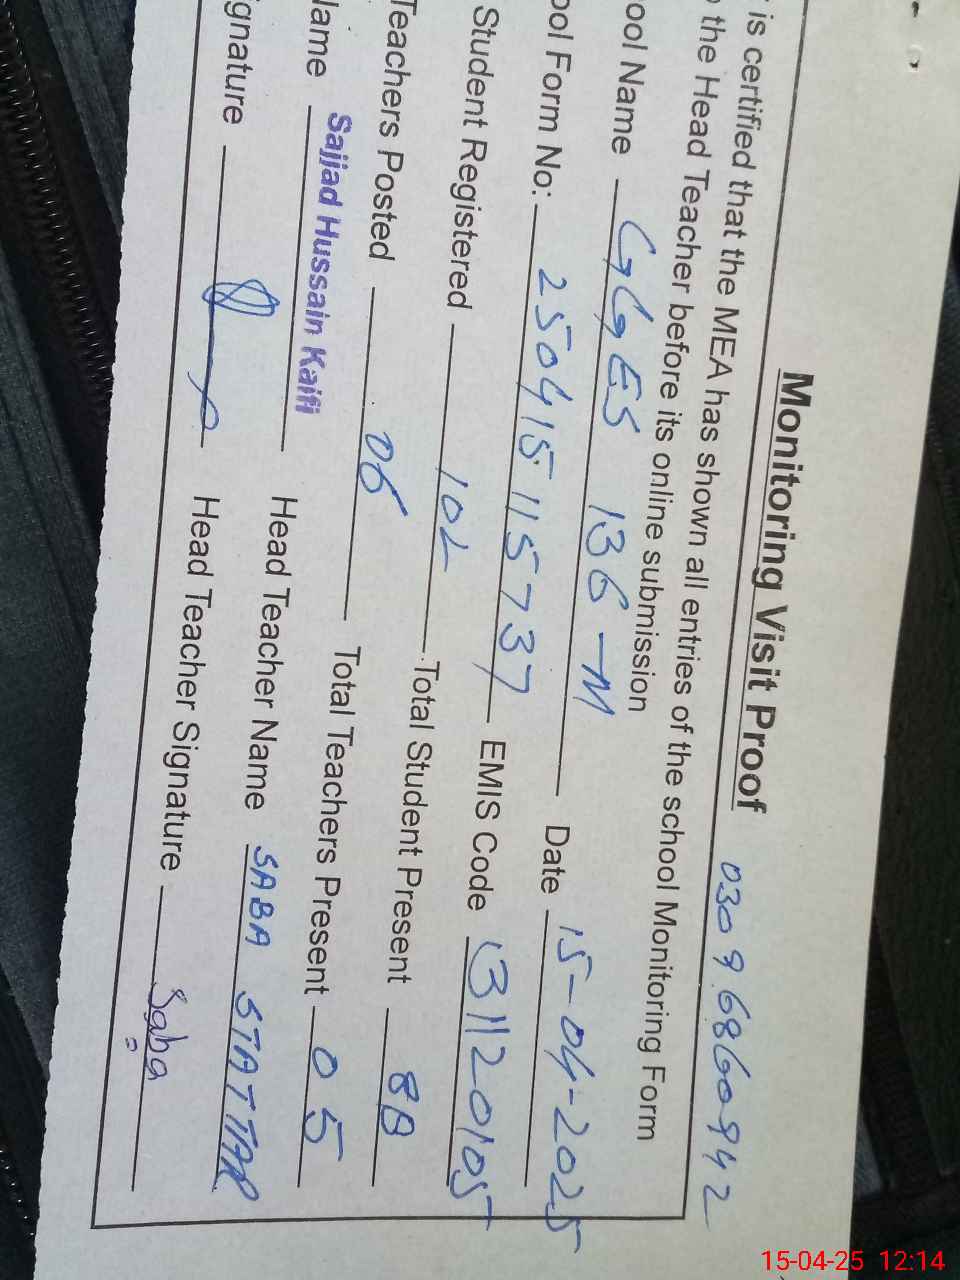 Monitoring Visit Proof 03096860942
is certified that the MEA has shown all entries of the school Monitoring Form
the Head Teacher before its online submission
ool Name GGES 136-M Date 15-04-2025
ool Form No: 250415115737 EMIS Code 31120105
Student Registered 102 Total Student Present 88
Teachers Posted 06 Total Teachers Present 05
Name Sajjad Hussain Kaifi Head Teacher Name SABA STATTAR
ignature Head Teacher Signature Saba
15-04-25 12:14